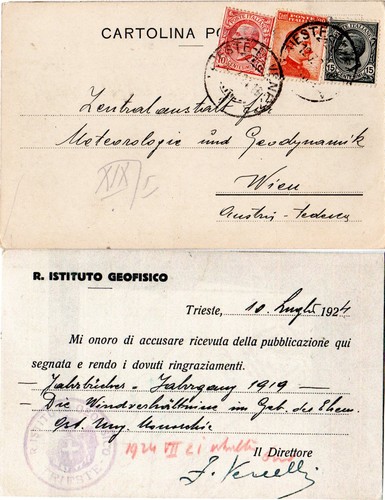 CARTOLINA PO
Zentralanstalt
Meteorologie und Geodynamik
Wien
Austria - tedesca
XIX/
R. ISTITUTO GEOFISICO
Trieste, 10 Luglio 1924
Mi onoro di accusare ricevuta della pubblicazione qui
segnata e rendo i dovuti ringraziamenti.
— Jahrbücher - Jahrgang 1919 —
— Die Windverhältnisse im Geb. des Ehem.
Öst. Ung. Monarchie
1924 VII 21
Il Direttore
F. Vercelli
TRIESTE
15 15